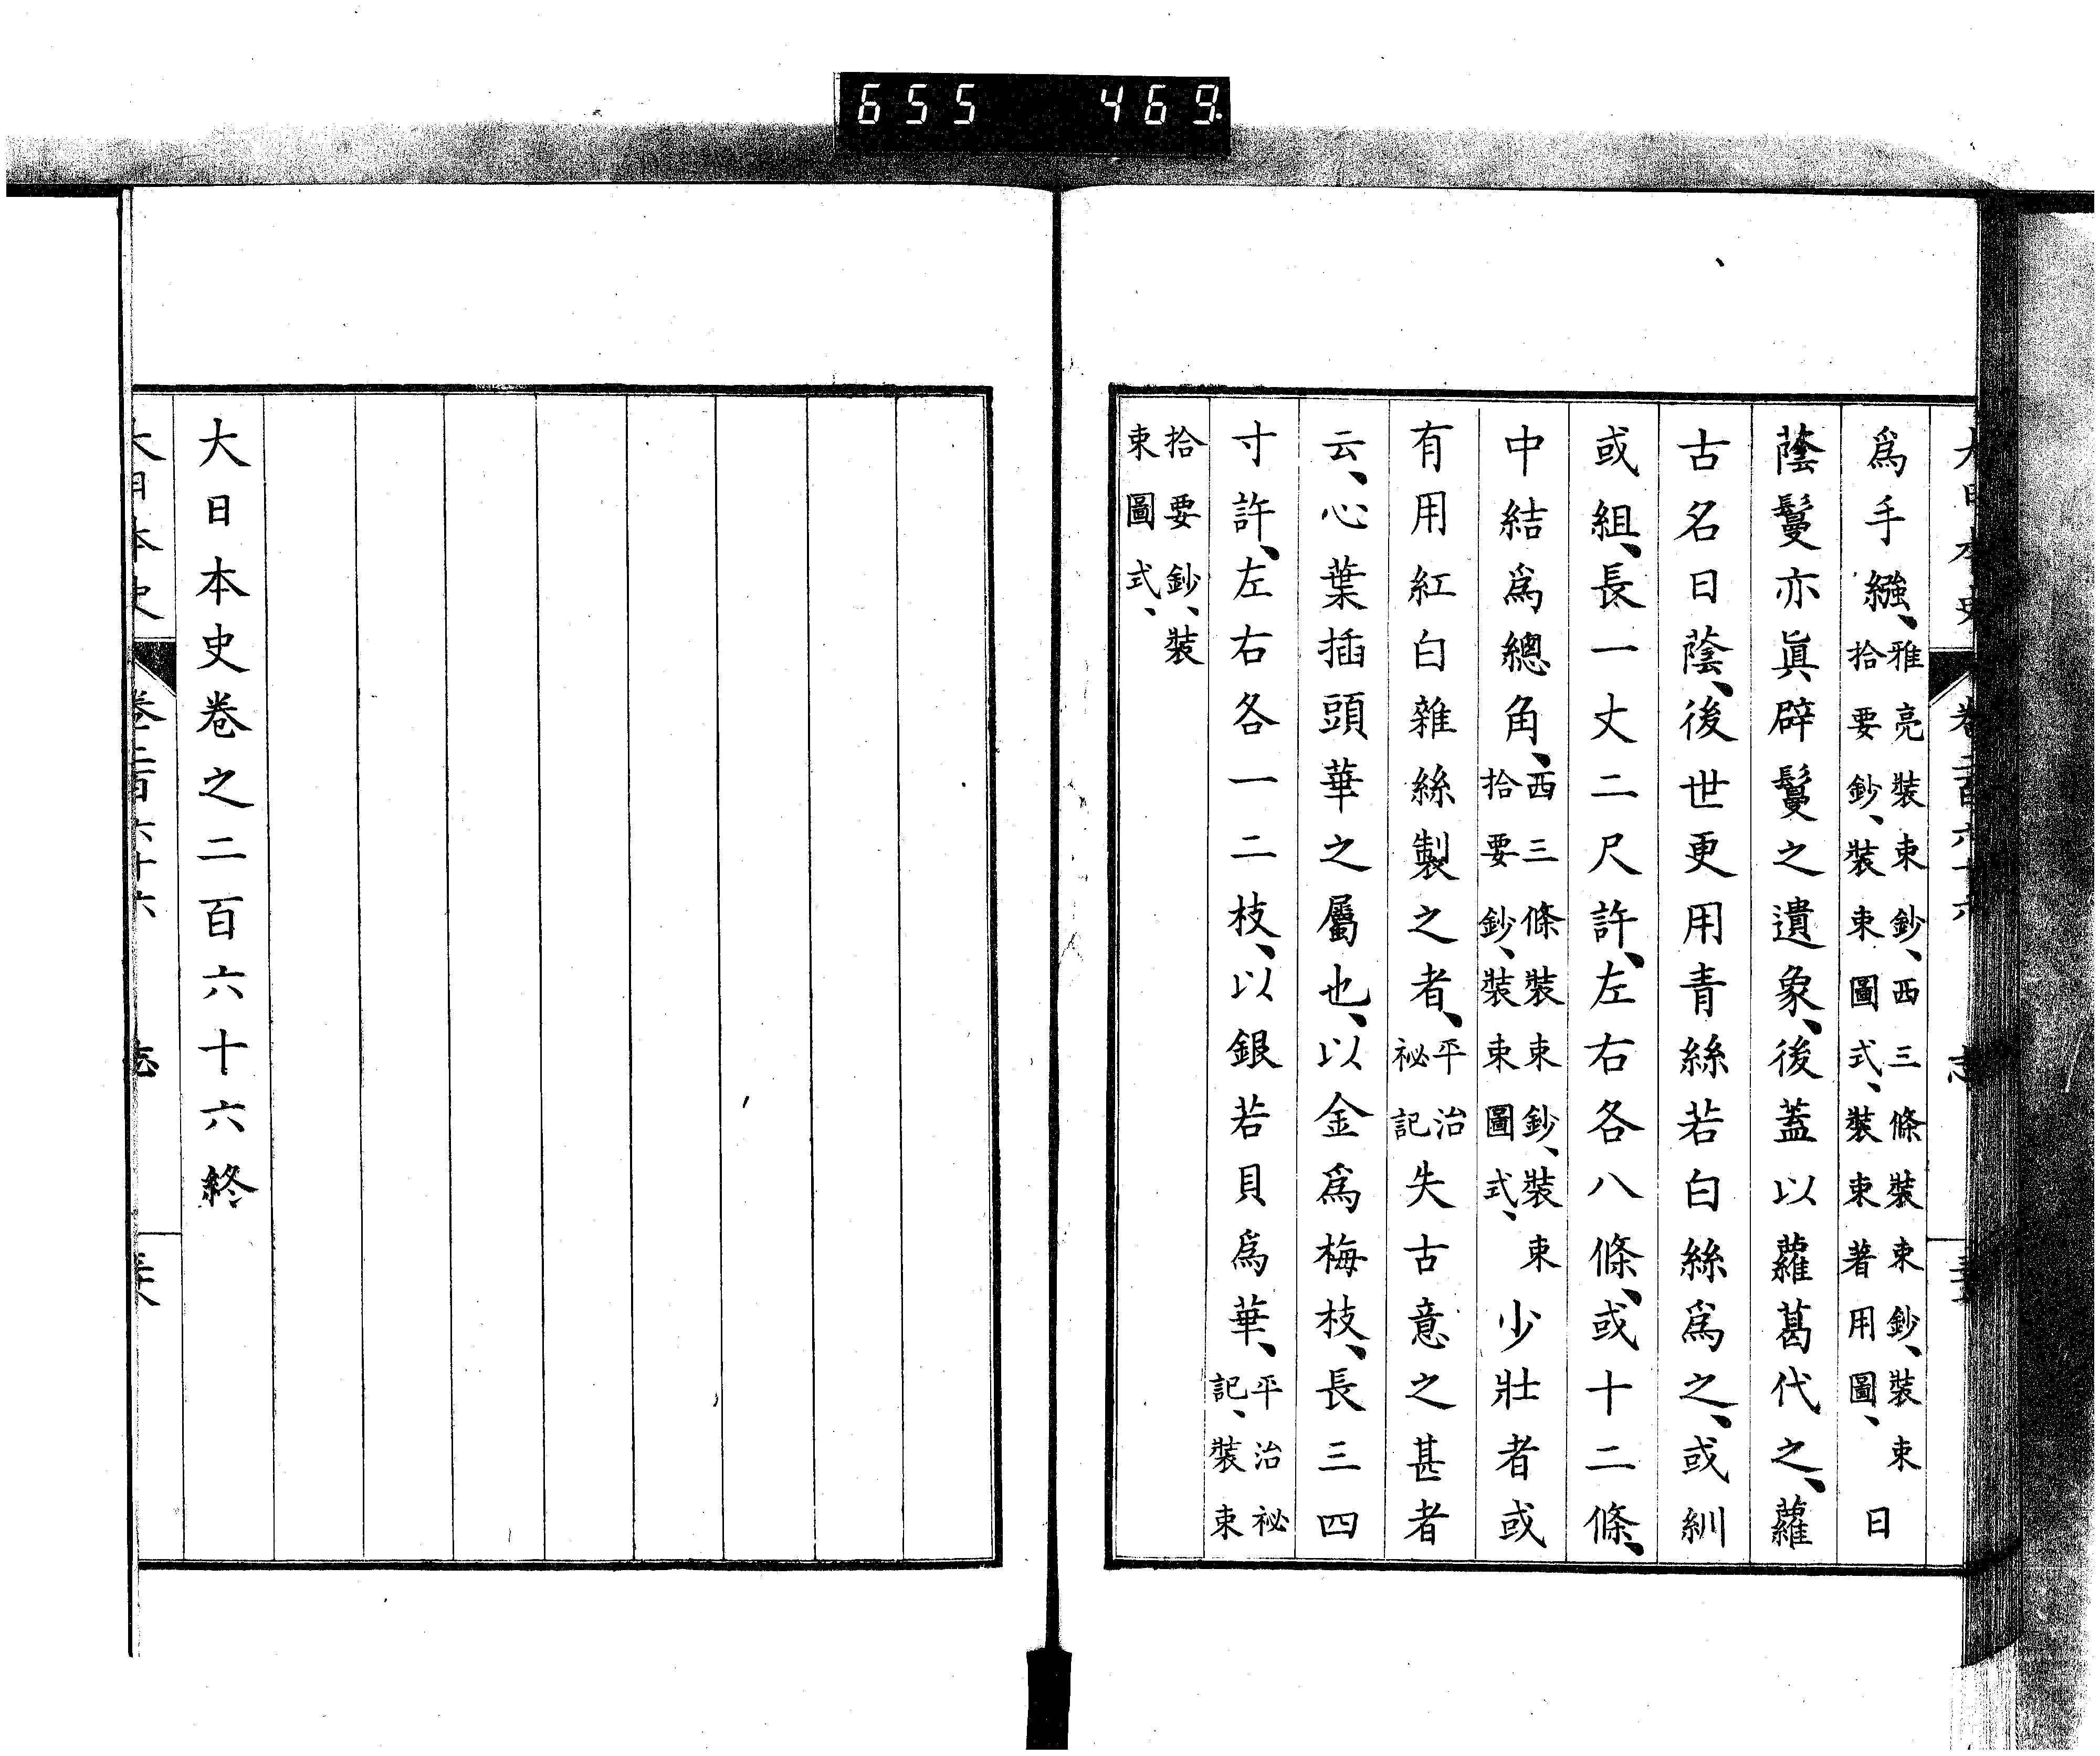 655 469
爲手繦、雅亮裝束鈔、西三條裝束鈔、裝束拾要鈔、裝束圖式、裝束著用圖、日
蔭鬘亦眞辟鬘之遺象、後蓋以蘿葛代之、蘿
古名日蔭、後世更用青絲若白絲爲之、或紃
或組、長一丈二尺許、左右各八條、或十二條、
中結爲總角、西三條裝束鈔、裝束拾要鈔、裝束圖式、少壯者或
有用紅白雜絲製之者、平治祕記失古意之甚者
云、心葉插頭華之屬也、以金爲梅枝、長三四
寸許、左右各一二枝、以銀若貝爲華、平治祕記、裝束
拾要鈔、裝束圖式、
大日本史卷之二百六十六終
大日本史 卷二百六十六 志